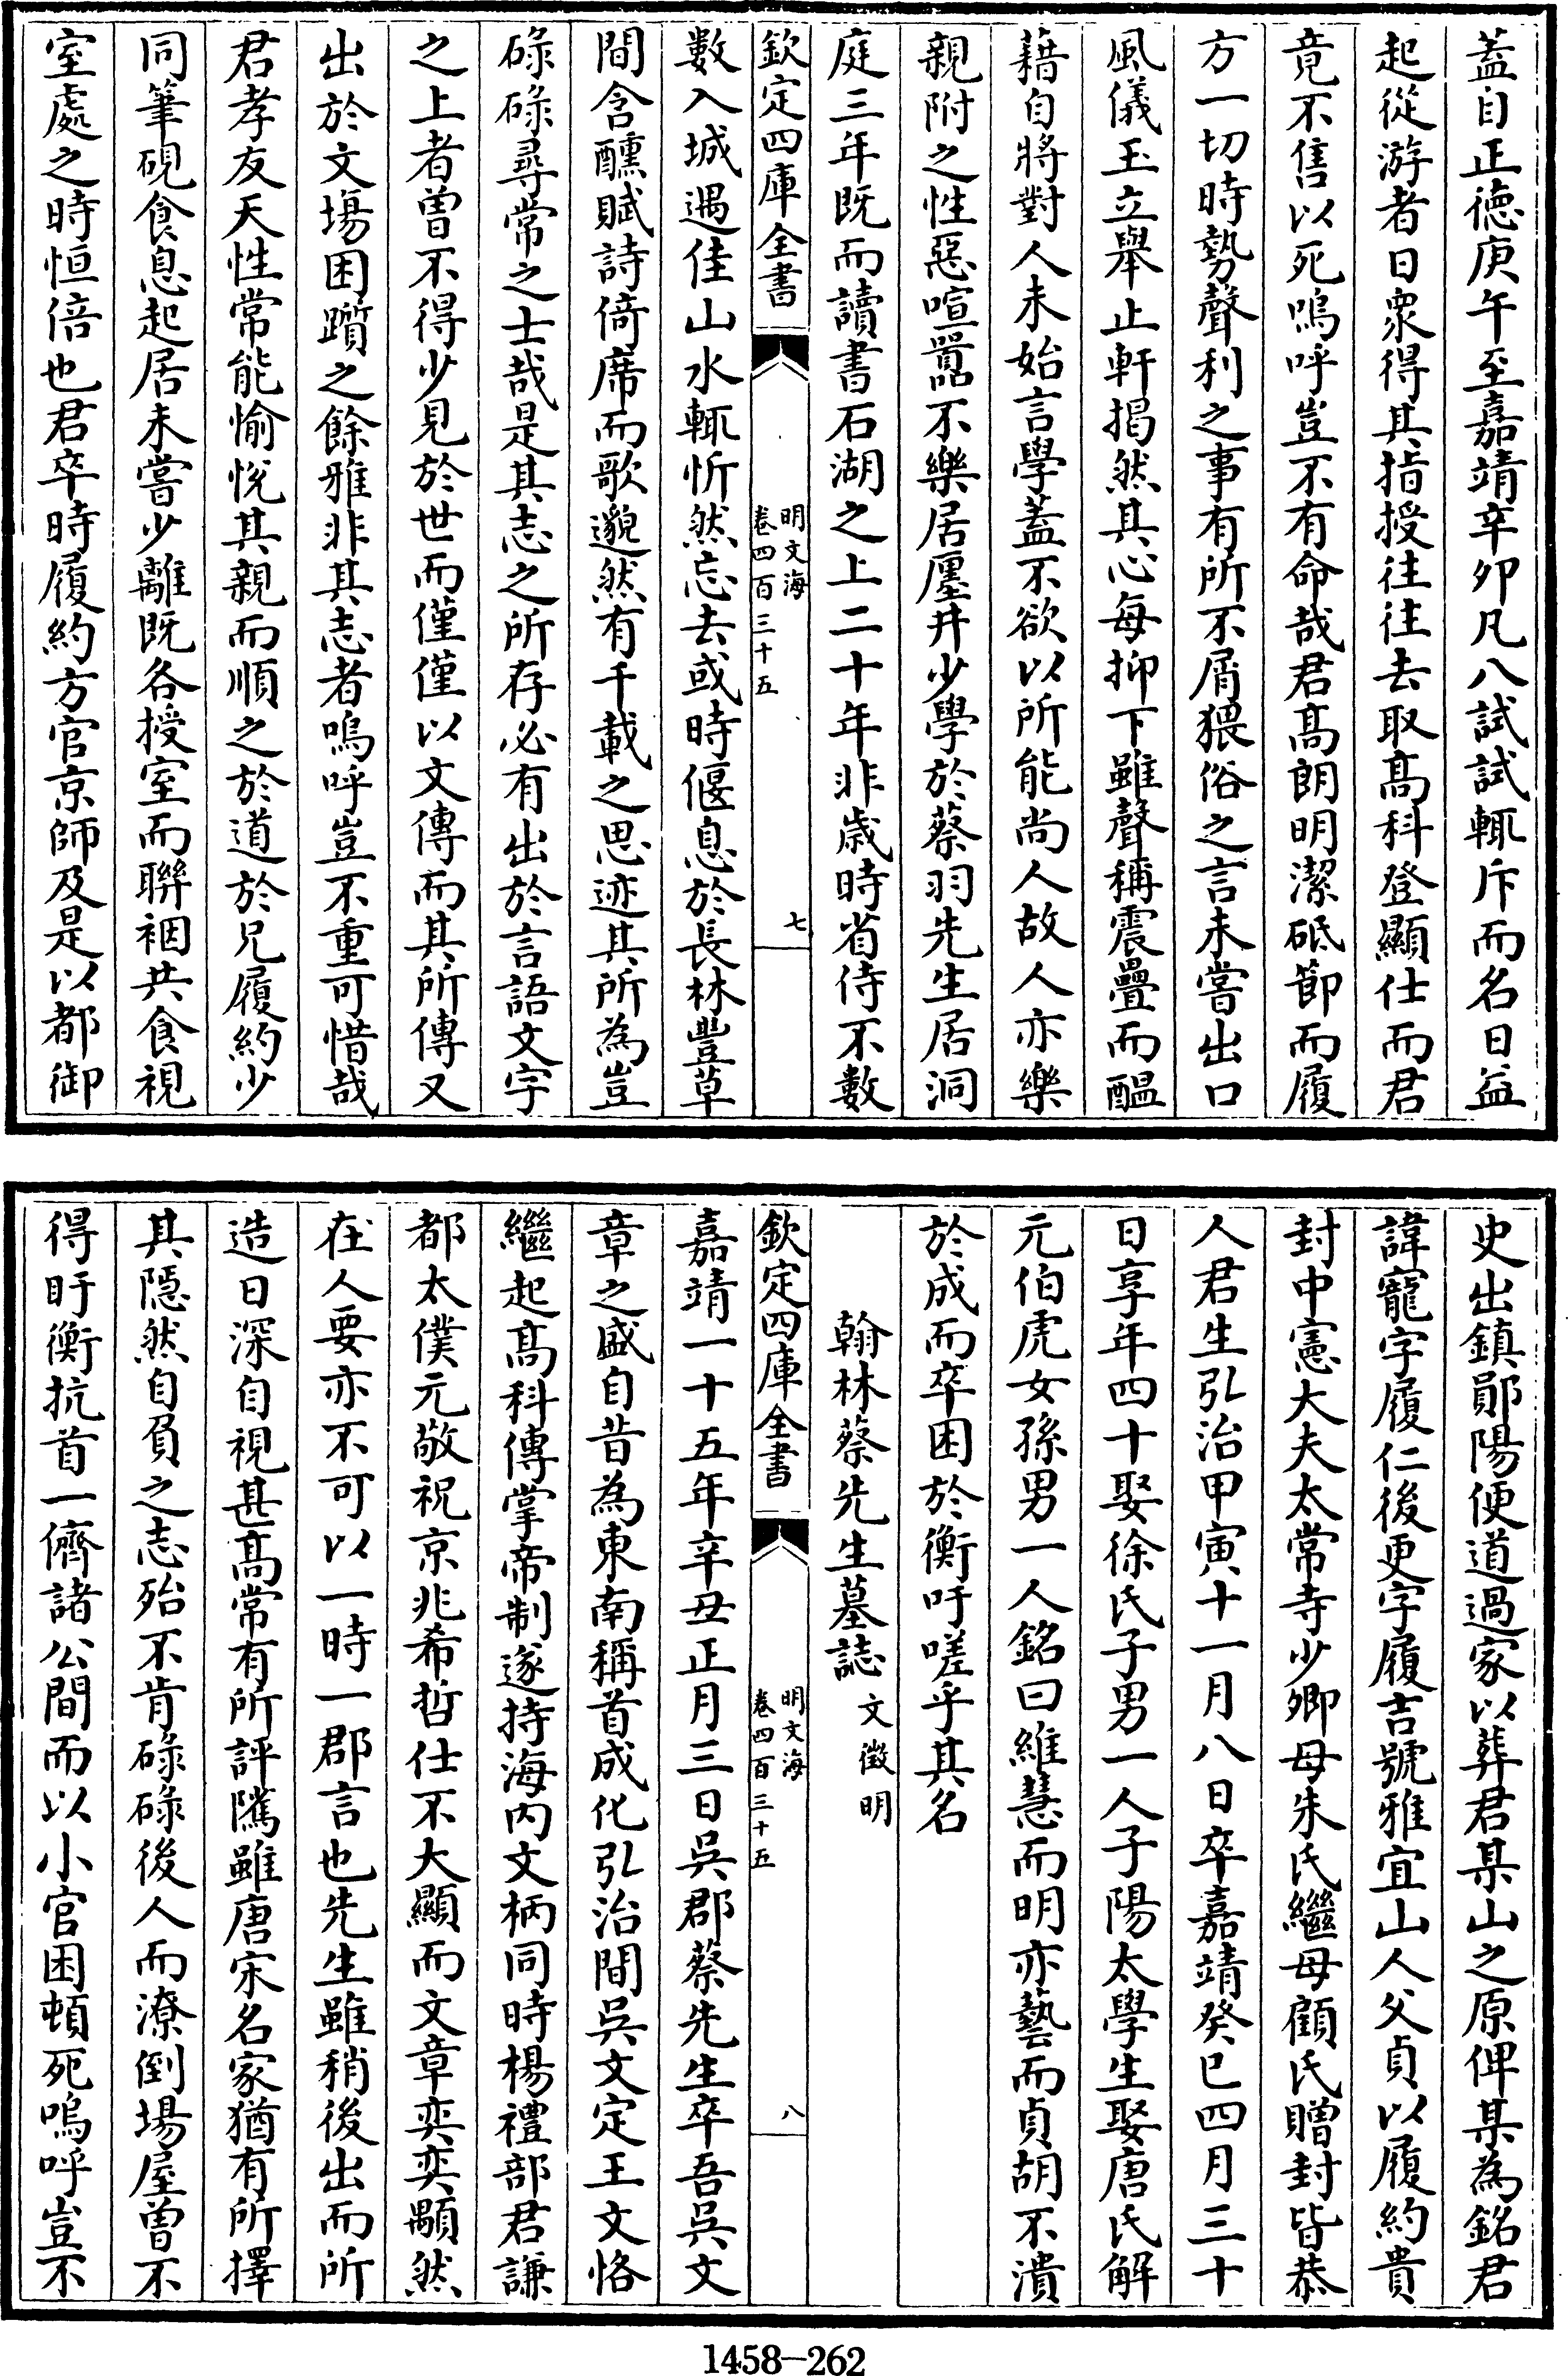 蓋自正徳庚午至嘉靖辛卯凡八試試輒斥而名日益
起從游者日衆得其指授往往去取髙科登顯仕而君
竟不售以死嗚呼豈不有命哉君髙朗明潔砥節而履
方一切時勢聲利之事有所不屑猥俗之言未嘗出口
風儀玉立舉止軒掲然其心每抑下雖聲稱震疊而醞
藉自將對人未始言學蓋不欲以所能尚人故人亦樂
親附之性惡喧囂不樂居㕓井少學於蔡羽先生居洞
庭三年既而讀書石湖之上二十年非歳時省侍不數
欽定四庫全書
明文海
卷四百三十五
七
數入城遇佳山水輒忻然忘去或時偃息於長林豐草
間含醺賦詩倚席而歌邈然有千載之思迹其所為豈
碌碌尋常之士哉是其志之所存必有出於言語文字
之上者曽不得少見於世而僅僅以文傳而其所傳又
出於文場困躓之餘雅非其志者嗚呼豈不重可惜哉
君孝友天性常能愉悅其親而順之於道於兄履約少
同筆硯食息起居未嘗少離既各授室而聨裀共食視
室處之時恒倍也君卒時履約方官京師及是以都御
史出鎮鄖陽便道過家以葬君某山之原俾某為銘君
諱寵字履仁後更字履吉號雅宜山人父貞以履約貴
封中憲大夫太常寺少卿母朱氏繼母顧氏贈封皆恭
人君生弘治甲寅十一月八日卒嘉靖癸巳四月三十
日享年四十娶徐氏子男一人子陽太學生娶唐氏解
元伯虎女孫男一人銘曰維慧而明亦藝而貞胡不潰
於成而卒困於衡吁嗟乎其名
翰林蔡先生墓誌 文徵明
欽定四庫全書
明文海
卷四百三十五
八
嘉靖一十五年辛丑正月三日吳郡蔡先生卒吾吳文
章之盛自昔為東南稱首成化弘治間吳文定王文恪
繼起髙科傳掌帝制遂持海内文柄同時楊禮部君謙
都太僕元敬祝京兆希哲仕不大顯而文章奕奕顯然
在人要亦不可以一時一郡言也先生雖稍後出而所
造日深自視甚髙常有所評隲雖唐宋名家猶有所擇
其隠然自負之志殆不肯碌碌後人而潦倒場屋曽不
得盱衡抗首一儕諸公間而以小官困頓死嗚呼豈不
1458—262